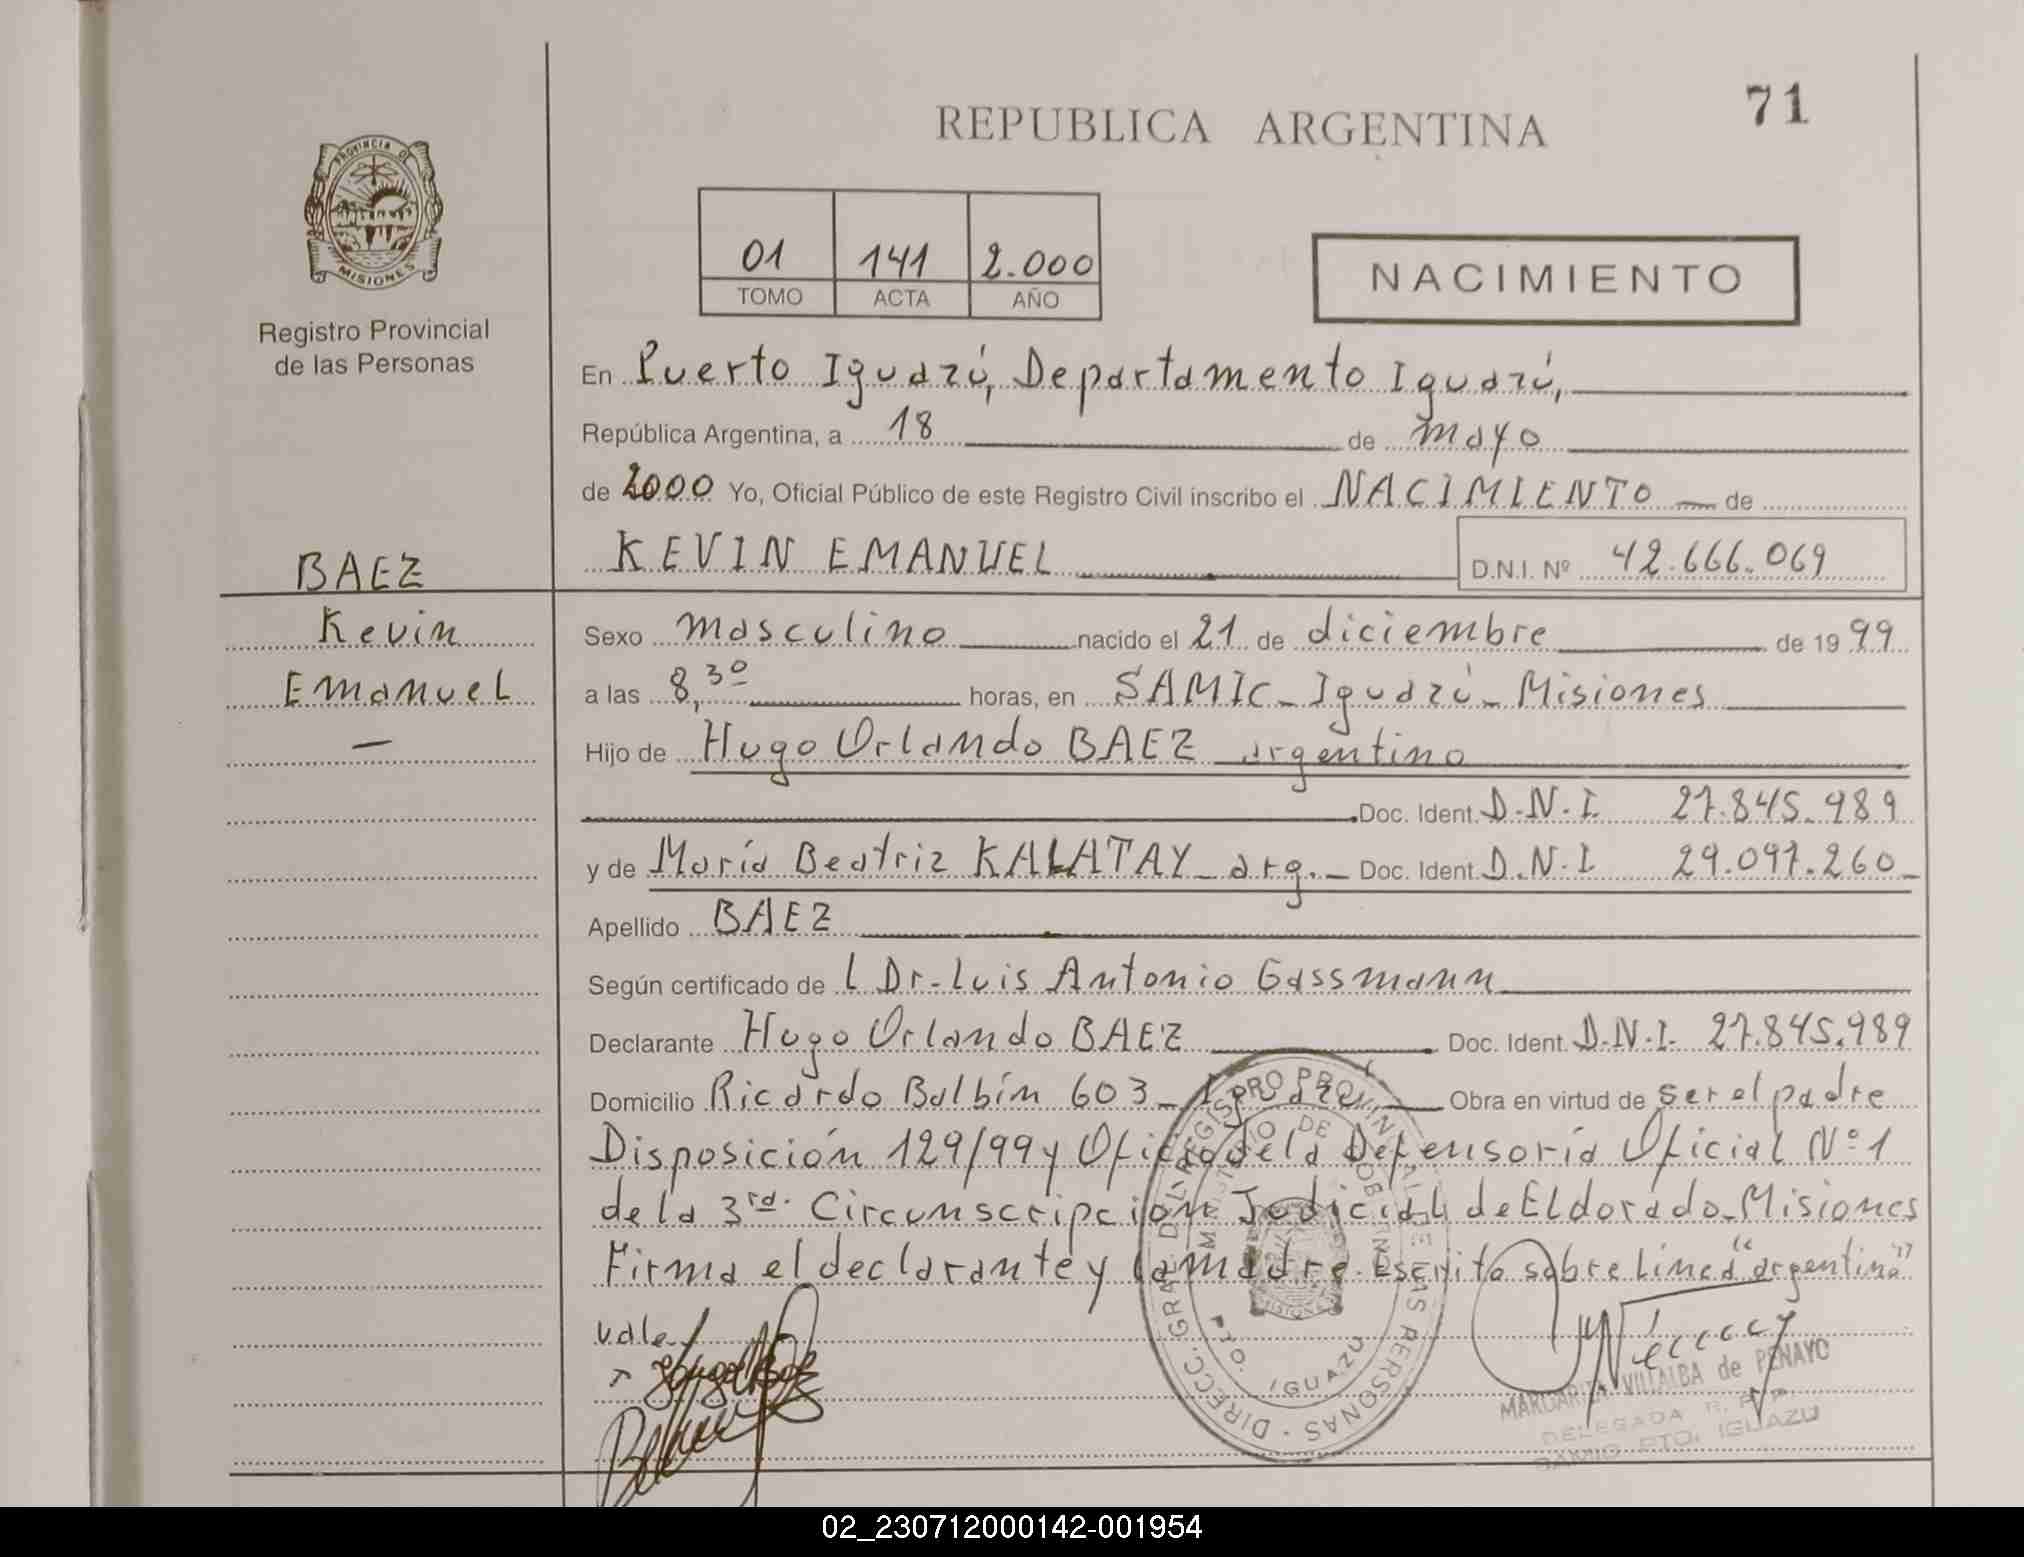 71
REPUBLICA ARGENTINA
PROVINCIA DE
MISIONES
Registro Provincial
de las Personas
01 141 2.000
TOMO ACTA AÑO
NACIMIENTO
En Puerto Iguazú, Departamento Iguazú,
República Argentina, a 18 de mayo
de 2000 Yo, Oficial Público de este Registro Civil inscribo el NACIMIENTO de
KEVIN EMANUEL D.N.I. Nº 42.666.069
BAEZ
Kevin
Emanuel
Sexo masculino nacido el 21 de diciembre de 1999
a las 8,30 horas, en SAMIC - Iguazú - Misiones
Hijo de Hugo Orlando BAEZ argentino
Doc. Ident. D.N.I. 27.845.989
y de María Beatriz KALATAY - arg. - Doc. Ident. D.N.I 29.097.260 -
Apellido BAEZ
Según certificado de l Dr. Luis Antonio Gassmann
Declarante Hugo Orlando BAEZ Doc. Ident. D.N.I. 27.845.989
Domicilio Ricardo Balbín 603 - Iguazú Obra en virtud de ser el padre
Disposición 129/99 y Oficio de la Defensoría Oficial Nº 1
de la 3ra. Circunscripción Judicial de Eldorado - Misiones
Firma el declarante y la madre. Escrito sobre línea "argentina"
vale
DIRECC. GRAL. DEL REGISTRO PROVINCIAL DE LAS PERSONAS
MINISTERIO DE GOBIERNO
PTO. IGUAZU
MISIONES
MARGARITA VILLALBA de PENAYO
DELEGADA R.P.P.
SAMIC PTO. IGUAZU
02_230712000142-001954